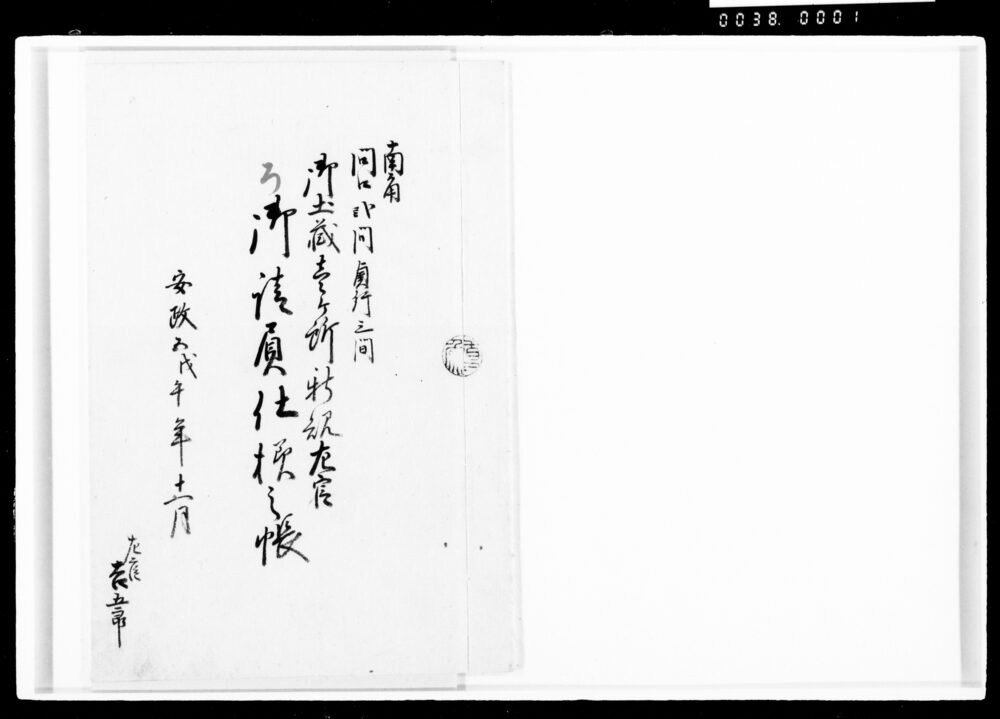 0038. 0001
南角
間口弐間奥行三間
御土蔵壱ヶ所新規左官
御請負仕様之帳
安政五戊午年十一月
左官
吉五郎